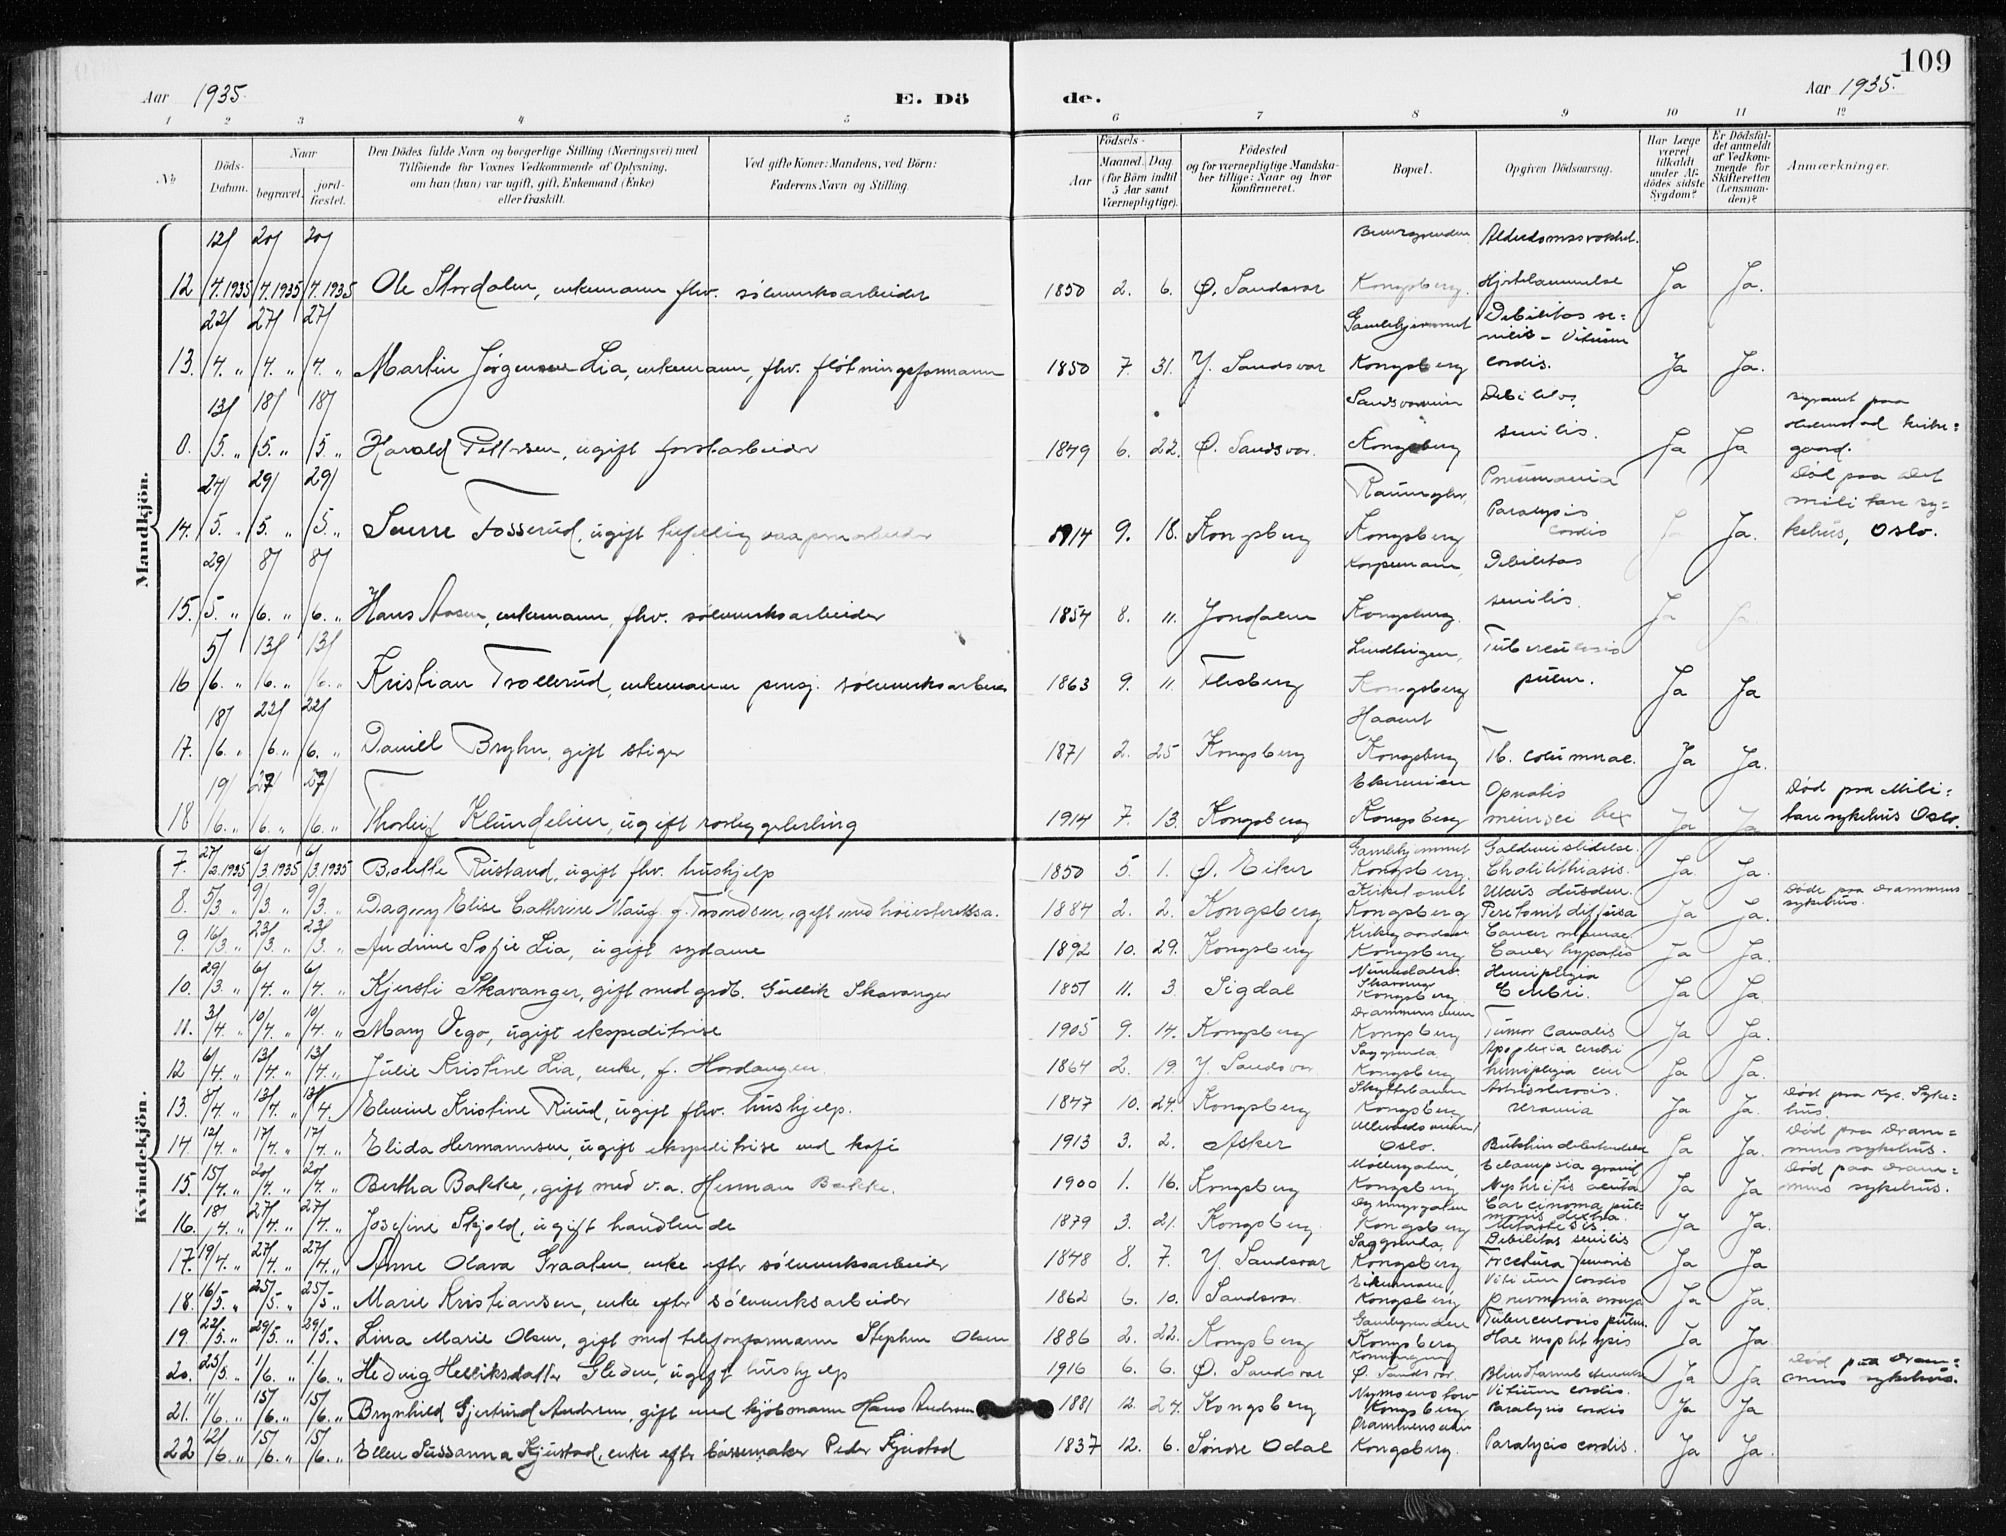 109
Aar 1935. E. Dö de. Aar 1935.
1 2 3 4 5 6 7 8 9 10 11 12
No. Döds-Datum. Naar begravet. jord-fæstet. Den Dödes fulde Navn og borgerlige Stilling (Næringsvei) med Tilföiende for Voxnes Vedkommende af Oplysning, om han (hun) var ugift, gift, Enkemand (Enke) eller fraskilt. Ved gifte Koner: Mandens, ved Börn: Faderens Navn og Stilling. Födsels- Aar Maaned. Dag. (for Börn indtil 5 Aar samt Værnepligtige). Födested og for værnepligtige Mandskaber tillige: Naar og hvor Konfirmeret. Bopæl. Opgiven Dödsaarsag. Har Læge været tilkaldt under Afdödes sidste Sygdom? Er Dödsfaldet anmeldt af Vedkommende for Skifteretten (Lensmanden)? Anmærkninger.
Mandkjön.
12 12/4.1935 20/4.1935 20/4.1935 Ole Stordalen, enkemann fhv. sølvverksarbeider 1850 2. 6. Ø. Sandsvær Kongsberg. Alderdomssvakhet. Hjertelammelse Ja Ja.
13. 22/4. " 27/4. " 27/4. " Martin Jørgensen Lia, enkemann, fhv. fløtningsformann 1850 7. 31. Y. Sandsvær Gamlehjemmet Kongsberg Debilitas senilis - Vitium cordis. Ja Ja.
0. 13/5. " 18/5. " 18/5. " Harald Pettersen, ugift forstarbeider 1849 6. 22. Ø. Sandsvær. Kongsberg Debilitas senilis. Ja Ja
14. 24/5. " 29/5. " 29/5. " Sverre Fosserud, ugift 1914 9. 18. Kongsberg Kongsberg Pneumonia Paralysis cordis Ja Ja. Død paa Det militære sykehus, Oslo.
15. 29/5. " 8/6. " 8/6. " Hans Aasen, enkemann, fhv. sølvverksarbeider 1854 8. 11. Jondalen Kongsberg. Debilitas senilis. Ja Ja
16 5/6. " 13/6. " 13/6. " Kristian Trollerud, enkemann pensj. sølvverksarbeider 1863 9. 11. Flesberg Kongsberg Tuberculosis pulm. Ja Ja
17. 18/6. " 22/6. " 22/6. " Daniel Bryhn, gift stiger 1871 2. 25 Kongsberg Kongsberg Tb. columnae. Ja Ja.
18 19/6. " 27/6. " 27/6. " Thorleif Klundelien, ugift 1914 7. 13. Kongsberg Kongsberg Ja Ja Død paa Militære sykehus Oslo.
Kvindekjön.
7. 27/2.1935 6/3.1935 6/3.1935 Bolette Rustand, ugift fhv. hushjelp 1850 5. 1. Ø. Eiker Gamlehjemmet Kongsberg. Cholilithiasis. Ja Ja.
8. 5/3 " 9/3 " 9/3. " Dagny Elise Cathrine gift med høiesterettsa. 1884 2. 2. Kongsberg Kongsberg Ulcus duoden. Peritonit diffusa Ja Ja. Døde paa Drammens sykehus.
9. 16/3 " 23/3 " 23/3. " Andrine Sofie Lia, ugift sydame 1892 10. 29. Kongsberg Kongsberg Cancer mamae Cancer hepatis Ja Ja.
10. 29/3. " 6/4. " 6/4. " Kjersti Skavanger, gift med grdb. Gullik Skavanger 1851 11. 3 Sigdal Skavanger Kongsberg Hemiplegia Cerebri. Ja Ja.
11. 3/4. " 10/4. " 10/4. " Mary Vego, ugift ekspeditrise 1905 9. 14. Kongsberg Drammensveien Kongsberg Tumor Ja Ja.
12 6/4. " 13/4. " 13/4. " Julie Kristine Lia, enke, f. Hordangen 1864 2. 19. Y. Sandsvær Saggrenda Kongsberg Apoplexia cerebri Ja Ja.
13. 8/4. " 13/4. " 13/4. Elevine Kristine Ruud, ugift fhv. hushjelp. 1847 10. 24. Kongsberg Kongsberg Uræmia Ja Ja. Død paa Kgb. Sykehus.
14. 12/4. " 17/4. " 17/4. " Elida Hermannsen, ugift ekspeditrise ved kafé 1913 3. 2. Asker Oslo. Ja Ja. Død paa Drammens sykehus.
15. 15/4. " 20/4. " 20/4. " Bertha Bakke, gift med v.a. Herman Bakke. 1900 1. 16. Kongsberg Kongsberg Eclampsia gravid Nephritis acuta Ja Ja Død paa Drammens sykehus.
16. 18/4. " 27/4. " 27/4. " Josefine Skjold, ugift handlende 1879 3. 21. Kongsberg. Kongsberg Carcinoma pulmonis dextra. Ja Ja.
17. 19/4. " 27/4. " 27/4. " Anne Olava Graaten, enke efter sølvverksarbeider 1848 8. 7. Y. Sandsvær Saggrenda, Kongsberg Debilitas senilis Fractura femoris Ja Ja
18. 16/5. " 25/5. " 25/5. " Marie Kristiansen, enke efter sølvverksarbeider 1862 6. 10. Sandsvær. Kongsberg Vitium cordis Ja Ja.
19. 22/5. " 29/5. " 29/5. " Lina Marie Olsen, gift med telefonformann Stephen Olsen 1886 2. 22. Kongsberg Kongsberg Tuberculosis pulm. Haemoptysis Ja Ja.
20. 25/5. " 1/6. " 1/6. " Hedvig Helliksdatter Gleden, ugift hushjelp 1916 6. 6. Ø. Sandsvær Ø. Sandsvær Ja Ja Død paa Drammens sykehus.
21. 11/6. " 15/6. " 15/6. " Brynhild Gjertrud Andersen, gift med kjøbmann Hans Andersen 1881 12. 24. Kongsberg Kongsberg Vitium cordis. Paralysis cordis Ja Ja
22 12/6. " 15/6. " 15/6. " Ellen Sussanna Kjustad, enke efter bøssemaker Peder Kjustad 1837 12. 6. Søndre Odal Drammensveien Kongsberg. Paralysis cordis. Ja Ja.